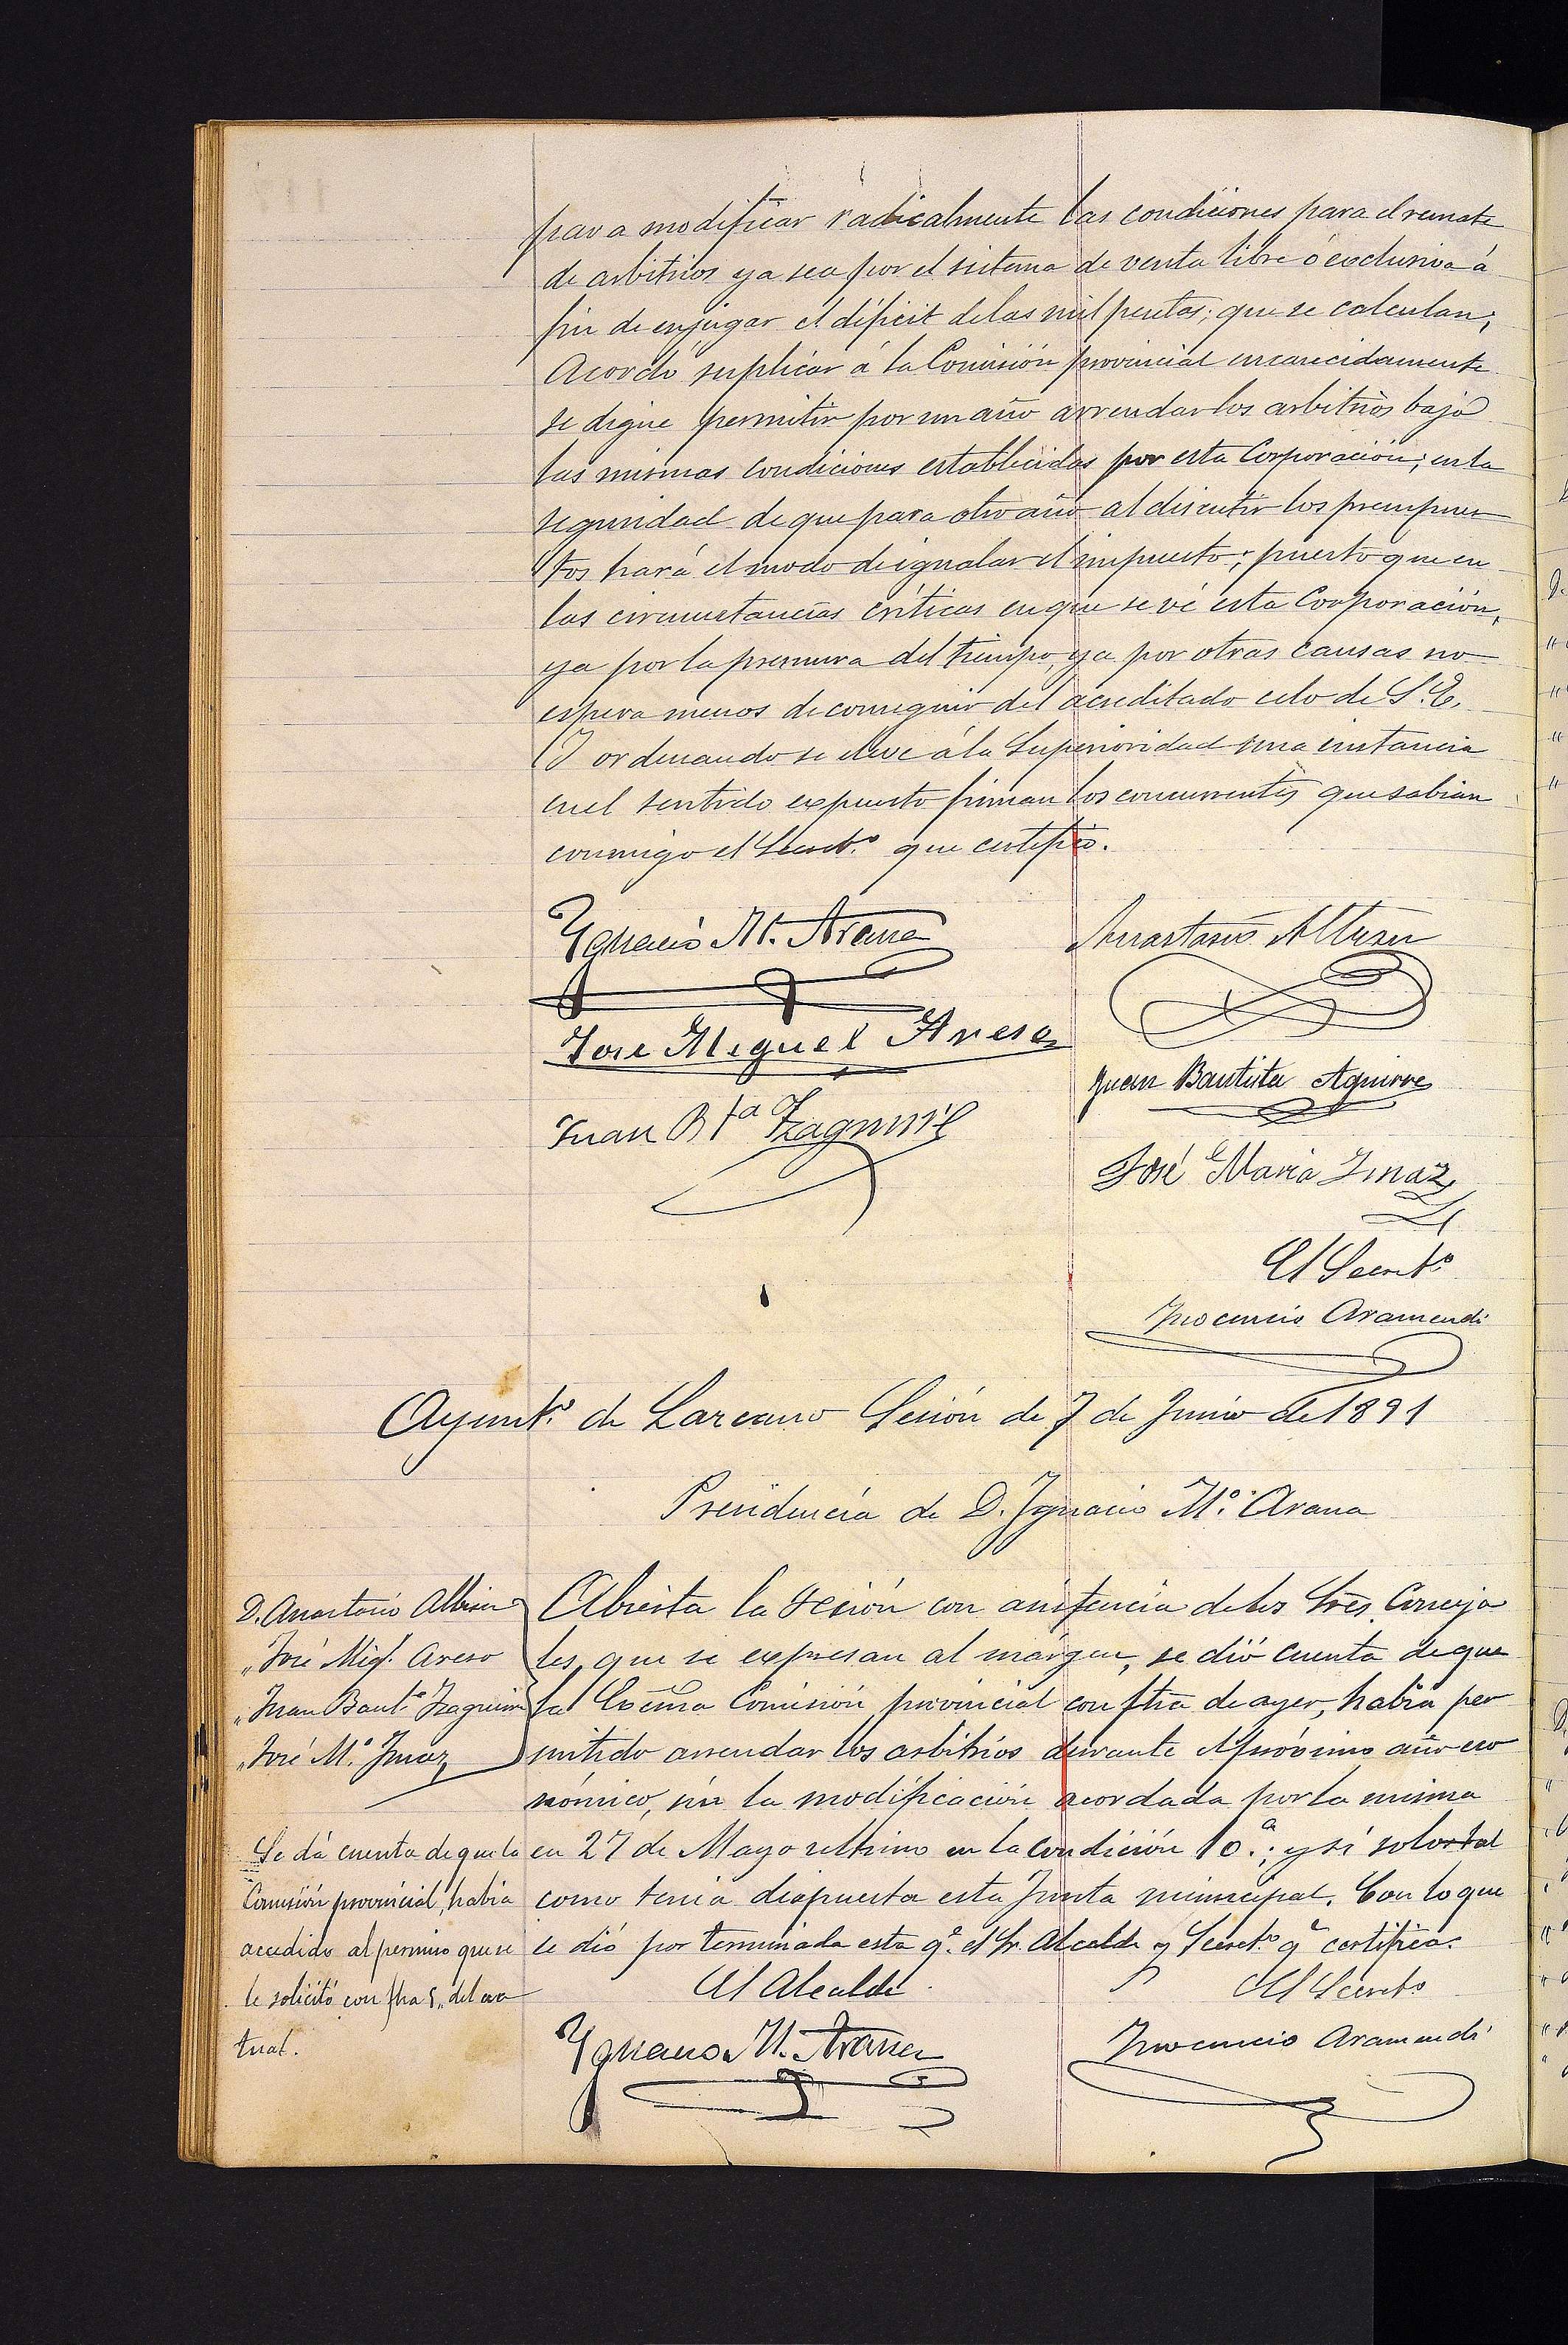 para modificar radicalmente las condiciones para el remate
de arbitrios ya sea por el sistema de venta libre ó exclusiva á
fin de enjugar el déficit de las mil pesetas; que se calculan;
Acordó suplicar á la Comisión provincial encarecidamente
se digne permitir por un año arrendar los arbitrios bajo
las mismas condiciones establecidas por esta Corporación; en la
seguridad de que para otro año al discutir los presupues
tos hará el modo de igualar el impuesto; puesto que en
las circunstancias críticas en que se vé esta Corporación,
ya por la premura del tiempo, ya por otras causas no
espera menos de conseguir del acreditado celo de S. E.
Y ordenando se eleve á la Superioridad una instancia
en el sentido expuesto firman los concurrentes que sabian
conmigo el Secret.º que certifico.
Ygnacio M. Arana
Anastasio Albisu
Jose Miguel Areso
Juan Bautista Aguirre
Juan Bta Yzaguirre
José Maria Imaz
El Secret.º
Inocencio Aramendi
Ayunt.º de Lazcano Sesión de 7 de Junio de 1891
Presidencia de D. Ignacio M.ª Arana
D. Anastasio Albisu
" José Mig.l Areso
" Juan Baut.ª Izaguirre
" José M.ª Imaz
Se dá cuenta de que la
Comisión provincial, habia
accedido al permiso que se
le solicitó con fha 5,, del ac
tual.
Abierta la sesión con asistencia de los Sres. Conceja
les, que se expresan al márgen, se dió cuenta de que
la Excma Comisión provincial con fha de ayer, habia per
mitido arrendar los arbitrios durante el próximo año eco
nómico, sin la modificación acordada por la misma
en 27 de Mayo ultimo en la condición 10.ª; y sí solo tal
como tenia dispuesta esta Junta municipal. Con lo que
se dió por terminada esta q.e el Sr. Alcalde y Secret.º q.e certifica.
El Alcalde
El Secret.º
Ygnacio M. Arana
Inocencio Aramendi